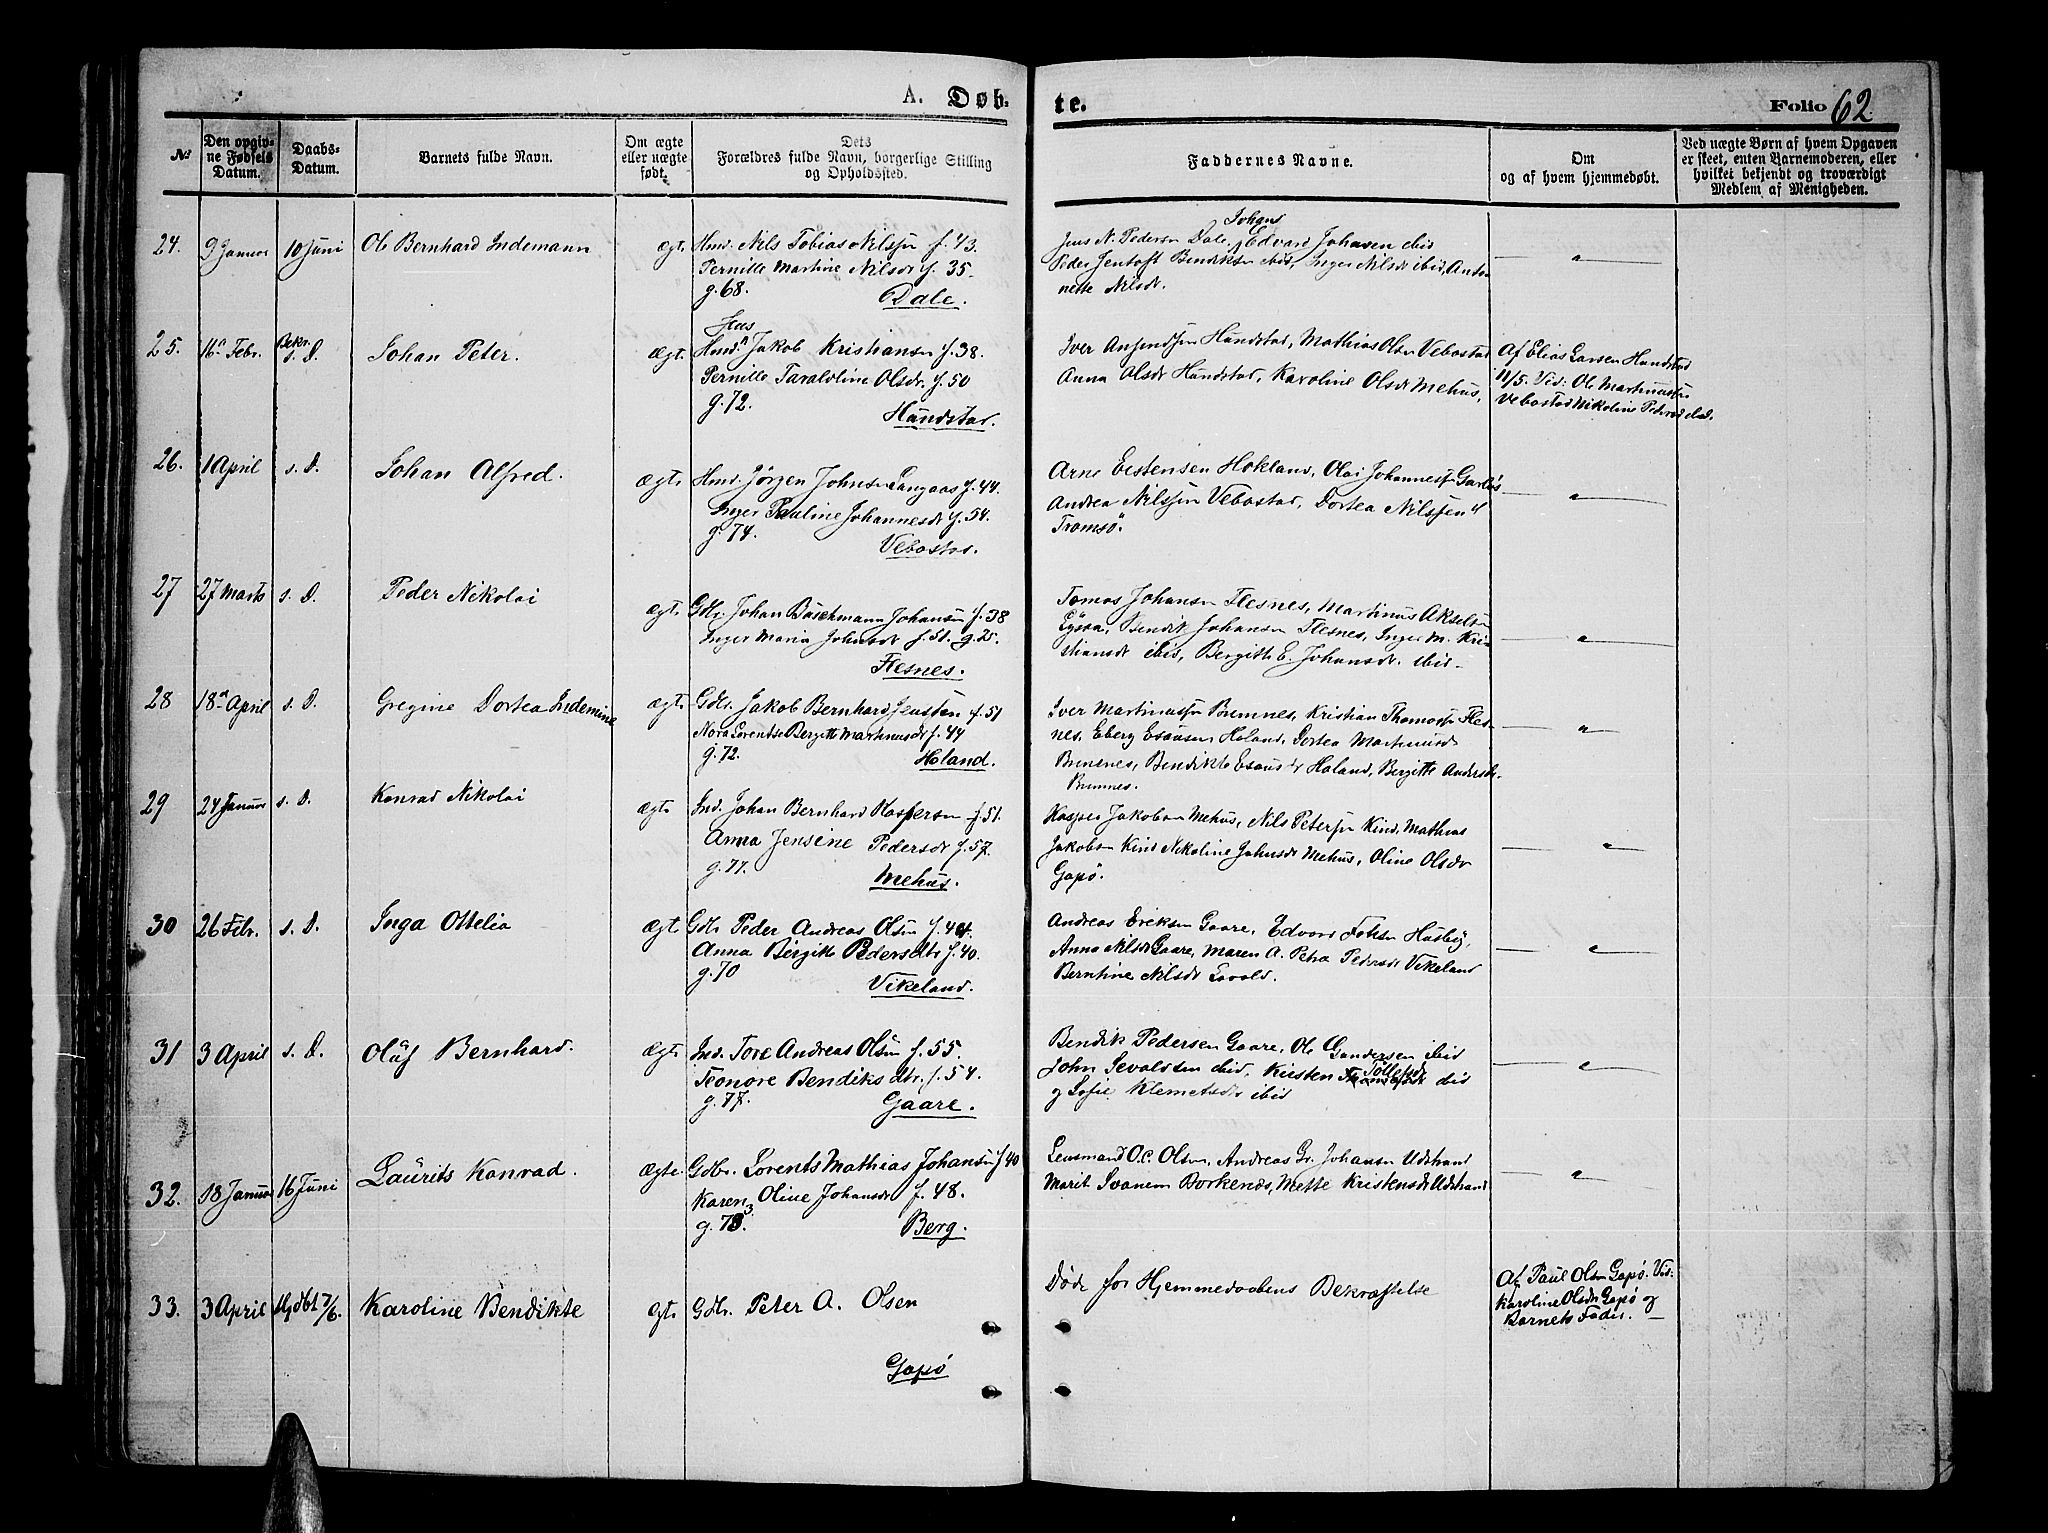 A. Døb-
te.
Folio 62
No
Den opgiv-
ne Fødsels
Datum.
Daabs-
Datum.
Barnets fulde Navn.
Om ægte
eller uægte
født.
Dets
Forældres fulde Navn, borgerlige Stilling
og Opholdssted.
Faddernes Navne.
Om
og af hvem hjemmedøbt.
Ved uægte Børn af hvem Opgaven
er skeet, enten Barnemoderen, eller
hvilket bekjendt og troværdigt
Medlem af Menigheden.
24. 9 Januar 10 Juni Ole Bernhard Indemann ægt. Hmd. Nils Tobias Nilssen f. 43.
Pernille Martine Nilsdr f. 35.
g. 68. Dale.
Johans
Jens N. Pedersen Dale, Edvard Johansen ibid
Peder Jentoft Bendiksen ibid, Inger Nilsdr ibid, Anto-
nette Nilsdr.
25. 16n Febr. Bekr. s. D. Johan Peter. ægt.
Hmd. Jakob Kristiansen f. 38.
Pernille Taraldine Olsdr. f. 50
g. 72. Hundstad.
Iver Hundstad, Mathias Olsen Vebostad
Anna Olsdr Hundstad, Karoline Olsdr Mehus,
Af Elias Larsen Hundstad
11/5. Vid: Ole Martinussen
Vebostad Nikoline Pedersdr ibd.
26. 1 April s. D. Johan Alfred. ægt. Hmd. Jørgen Johnsen Langaas f. 44.
Inger Pauline Johannesdr f. 54.
g. 74. Vebostad.
Arne Eistensen Hokland, Olai Johannessen
Andrea Nilssen Vebostad, Dortea Nilssen af
Tromsö.
27 27 Marts s. D. Peder Nikolai ægt. Gdbr. Johan Buschmann Johansen f. 38
Inger Maria Johnsdr f. 51. g. 75.
Flesnes.
Tomas Johansen Flesnes, Martinus Akselsen
Bendik Johansen Flesnes, Inger M. Kri-
stiansdr ibid, Bergitte E. Johansdr. ibid.
28 18n April s. D. Gregine Dortea Indemine ægt. Gdbr. Jakob Bernhard Jenssen f. 51
Nora Lorentse Bergitte Martinusdr f. 44
g. 72. Holand.
Iver Martinussen Bremnes, Kristian Thomassen Fles-
nes, Eberg Esausen Holand, Dortea Martinusdr
Bremnes, Bendikte Esausdr Holand, Bergitte Andersdr
Bremnes.
29 24 Januar s. D. Konrad Nikolai ægt. Ind. Johan Bernhard Kaspersen f. 51.
Anna Jensine Pedersdr f. 57.
g. 77. Mehus.
Kasper Jakobsen Mehus, Nils Petersen Kind, Mathias
Jakobsen Kind Nikoline Johnsdr Mehus, Oline Olsdr
Gapø.
30 26 Febr. s. D. Inga Ottelia ægt Gdbr Peder Andreas Olsen f. 44.
Anna Birgitte Pedersdtr f. 40.
g. 70 Vikeland.
Andreas Eriksen Gaare, Edvard Husby,
Anna Nilsdr Gaare, Maren A. Petra Pedersdr Vikeland
Berntine Nilsdr
31 3 April s. D. Oluf Bernhard. ægt. Ind. Tore Andreas Olsen f. 55.
Leonore Bendiksdtr. f. 54.
g. 77. Gaare.
Bendik Pedersen Gaare, Ole Gundersen ibid
John Sevaldsen ibid, Kirsten Tollefsdr ibid
og Sofie Klemetsdr ibid
32. 18 Januar 16 Juni Laurits Konrad. ægte. Gdbr. Lorents Mathias Johansen f. 40
Karen Oline Johansdr f. 48.
g. 73. Berg.
Lensmand O.C. Olsen, Andreas Gr. Johansen Udstrand
Marit Svanem Borkenes, Mette Kristensdr Udstrand
33. 3 April Hjdbt 7/6. Karoline Bendikte ægt. Gdbr. Peter A. Olsen
Gapø
Døde før Hjemmedaabens Bekræftelse
Af Paul Olsen Gapø. Vid.
Karoline Olsdr Gapø og
Barnets Fader.